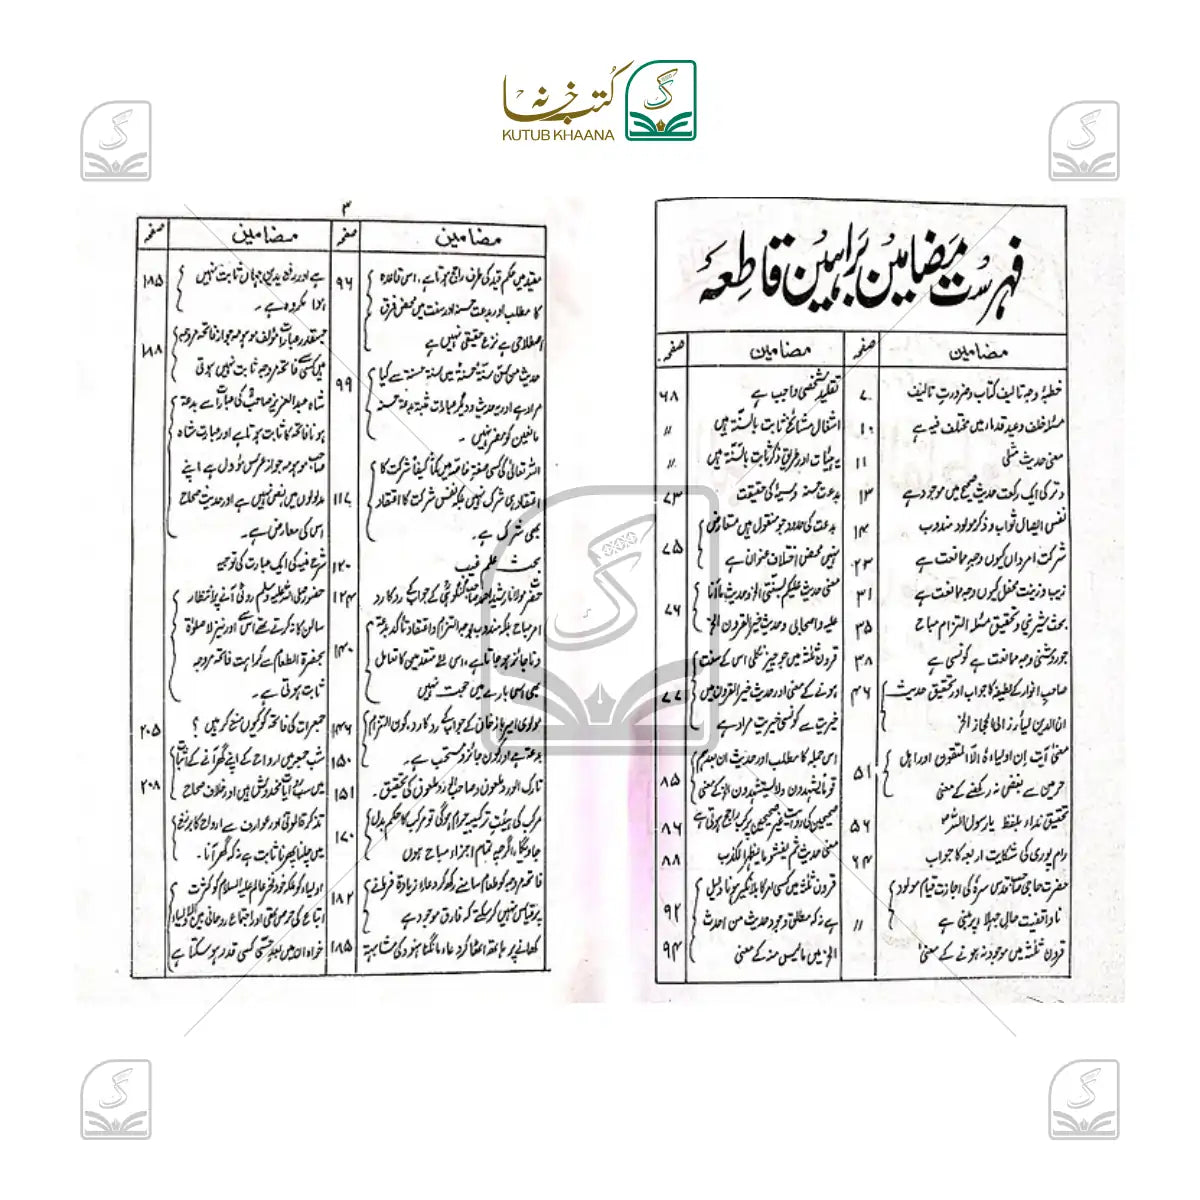 کتب خانہ
KUTUB KHAANA
فہرست مضامین براہین قاطعہ
مضامین
صفحہ
خطبۂ وجہ تالیف کتاب و ضرورتِ تالیف
۷
مسئلہ خلف وعید قدماء میں مختلف فیہ ہے
۱۰
معنی حدیث مثلی
۱۱
وتر کی ایک رکعت حدیث صحیح میں موجود ہے
۱۳
نفس ایصال ثواب و ذکر مولود مندوب
۱۴
شرکت امرداں کیوں وجہ ممانعت ہے
۲۳
زیب و زینت محفل کیوں وجہ ممانعت ہے
۳۱
بحث شیرینی و تحقیق مسئلہ التزام مباح
۳۵
جو روشنی وجہ ممانعت ہے کونسی ہے
۳۸
صاحب انوار کے لطیفہ کا جواب اور تحقیق حدیث
۴۶
ان الدین لیأرز الی الحجاز الخ
معنی آیت ان اولیاءہ الا المتقون اور اہل
۵۱
حرمین سے بغض نہ رکھنے کے معنی
تحقیق نداء بلفظ یا رسول اللہ
۵۶
رام پوری کی شکایت اربعہ کا جواب
۶۴
حضرت حاجی صاحب قدس سرہٗ کی اجازت قیام مولود
ناواقفیت حال جہلا پر مبنی ہے
〃
قرون ثلثہ میں موجود نہ ہونے کے معنی
مضامین
صفحہ
تقلید شخصی واجب ہے
۶۸
اشغال مشائخ ثابت بالسنۃ ہیں
〃
یہ ہیئات اور طریق ذکر ثابت بالسنۃ ہیں
〃
بدعت حسنہ و سیئہ کی حقیقت
۷۳
بدعت کی حدود جو منقول ہیں متعارض
۷۵
نہیں محض اختلاف عنوان ہے
معنی حدیث علیکم بسنتی الخ و حدیث ما انا
۷۶
علیہ واصحابی و حدیث خیر القرون الخ
قرون ثلثہ میں جو چیز نکلی اس کے سنت
۷۷
ہونے کے معنی اور حدیث خیر القرون میں
خیریت سے کونسی خیریت مراد ہے
اس جملہ کا مطلب اور حدیث ان بعدکم
۸۵
قوما یشہدون ولا یستشہدون الخ کے معنی
۸۶
معنی حدیث ثم یفشو ما یظہر الکذب
۸۸
قرون ثلثہ میں کسی امر کا بلا نکیر ہونا دلیل
۹۲
ہے نہ کہ مطلق وجود حدیث من احدث
الخ میں مالیس منہ کے معنی
۹۴
۳
مضامین
صفحہ
مقید میں حکم قید کی طرف راجع ہوتا ہے، اس قاعدہ
۹۶
کا مطلب اور بدعت حسنہ اور سنت میں محض فرق
اصطلاحی ہے نزع حقیقی نہیں ہے
حدیث من سن سنۃ حسنۃ میں سنۃ حسنۃ سے کیا
۹۹
مراد ہے اور یہ حدیث و دیگر عبارات مثبتہ بدعۃ حسنہ
مانعین کو مضر نہیں۔
اللہ تعالی کی کسی صفت خاصہ میں کما کیفا شرکت کا
اعتقاد ہی شرک نہیں بلکہ نفس شرکت کا اعتقاد
۱۱۷
بھی شرک ہے۔
بحث علم غیب
۱۲۰
حضرت مولانا رشید احمد صاحب گنگوہی کے جواب کے رد کا رد
۱۲۴
امر مباح بلکہ مندوب بوجہ التزام و اعتقاد تاکد بدعۃ
و ناجائز ہو جاتا ہے، اس لئے متقدمین کا تعامل
۱۴۰
بھی اس بارے میں حجت نہیں
مولوی امیر باز خان کے جواب کے رد کا رد۔ کون التزام
۱۴۶
بدعۃ ہے اور کون جائز و مستحب ہے۔
۱۵۰
۱۵۱
مرکب کی ہیئت ترکیبیہ حرام ہو گی تو مرکب کا حکم بدل
۱۷۰
جاویگا، اگرچہ تمام اجزاء مباح ہوں
فاتحہ مروجہ کو طعام سامنے رکھ کر دعاء زیادۃ فرمانے
۱۸۲
پر قیاس نہیں کر سکتے کہ فارق موجود ہے
کھانے پر ہاتھ اٹھا کر دعاء مانگنا ہنود کی مشابہت
۱۸۵
مضامین
صفحہ
ہے اور رفع یدین جہاں ثابت نہیں
۱۸۵
ہوا مکروہ ہے۔
جسقدر عبارات مؤلف موہومہ جواز فاتحہ مروجہ
۱۸۸
میں کسی فاتحہ مروجہ ثابت نہیں ہوتی
شاہ عبدالعزیز صاحب کی عبارات سے بدعۃ
ہونا فاتحہ کا ثابت ہوتا ہے اور عبارت شاہ
صاحب موہومہ جواز عرس مؤول ہے، اپنے
مدلولوں میں نص نہیں ہے اور حدیث صحاح
اس کی معارض ہے۔
شرح منیہ کی ایک عبارت کی توجیہ
حضور صلی اللہ علیہ وسلم روٹی آنے پر انتظار
سالن کا نہ کرتے تھے اس سے اور نیز لا صلوٰۃ
بحضرۃ الطعام سے کراہت فاتحہ مروجہ
ثابت ہوتی ہے۔
جمعرات کی فاتحہ کو کیوں منع کرتے ہیں؟
۲۰۵
شب جمعہ میں ارواح کے اپنے گھر آنے کے اثبات
۲۰۸
تذکر قالوتی اور عوارف سے ارواح کا برزخ
میں چلنا پھرنا ثابت ہے نہ کہ گھر آنا۔
اولیاء کو بلکہ خود فخر عالم علیہ السلام کو کثرت
خواہ ان میں بعد حسی کسی قدر ہو سکتا ہے